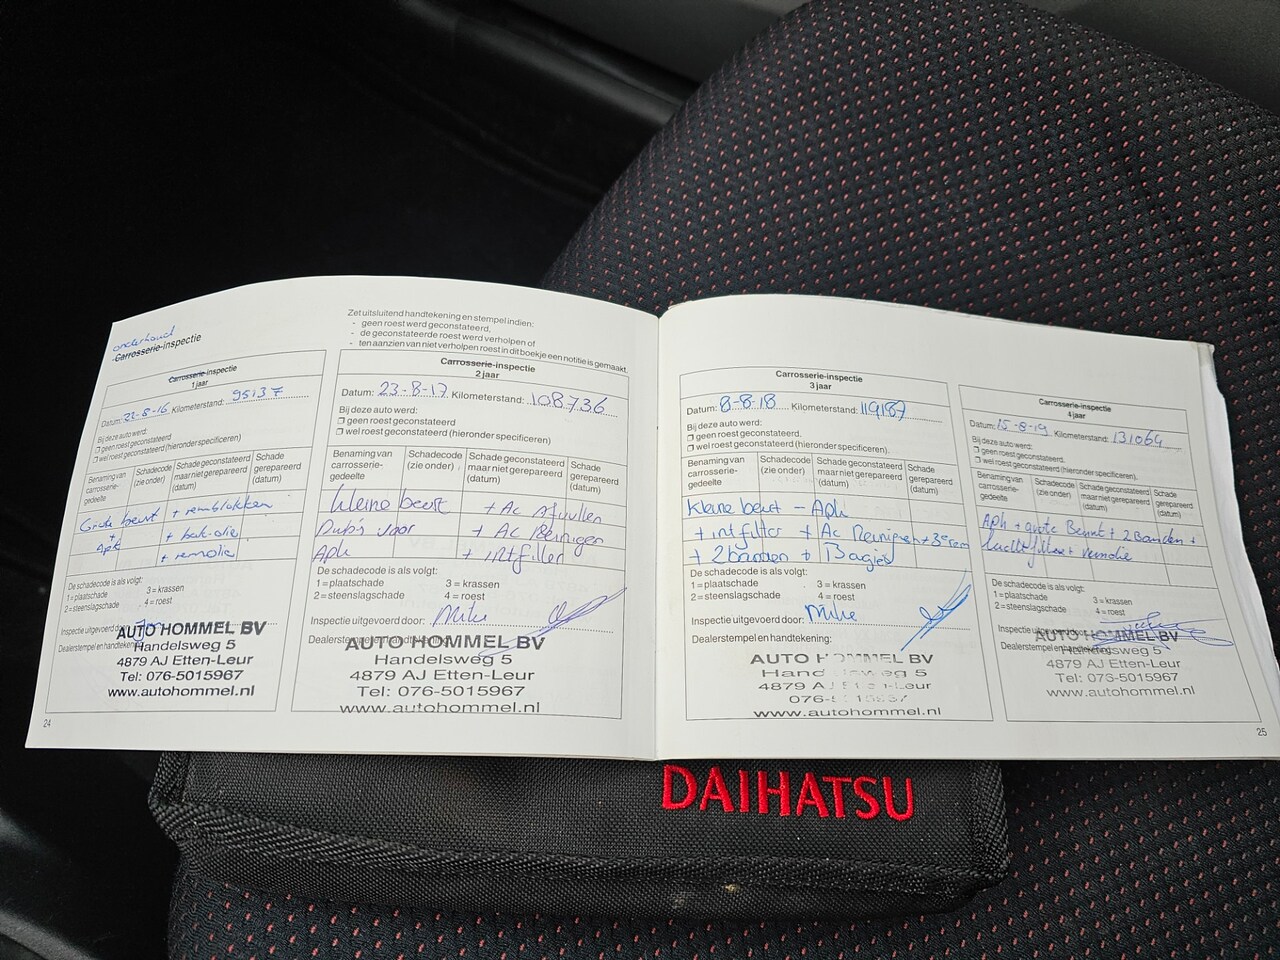 onderhoud
Carrosserie-inspectie
Carrosserie-inspectie
1 jaar
Datum: 22-8-16 Kilometerstand: 95137
Bij deze auto werd:
geen roest geconstateerd
wel roest geconstateerd (hieronder specificeren)
Benaming van carrosserie-gedeelte
Schadecode (zie onder)
Schade geconstateerd maar niet gerepareerd (datum)
Schade gerepareerd (datum)
Grote beurt + remblokken
+ Apk + bak-olie
+ remolie
De schadecode is als volgt:
1 = plaatschade 3 = krassen
2 = steenslagschade 4 = roest
Inspectie uitgevoerd door:
Dealerstempel en handtekening:
AUTO HOMMEL BV
Handelsweg 5
4879 AJ Etten-Leur
Tel: 076-5015967
www.autohommel.nl
24
Zet uitsluitend handtekening en stempel indien:
- geen roest werd geconstateerd,
- de geconstateerde roest werd verholpen of
- ten aanzien van niet verholpen roest in dit boekje een notitie is gemaakt.
Carrosserie-inspectie
2 jaar
Datum: 23-8-17 Kilometerstand: 108736
Bij deze auto werd:
geen roest geconstateerd
wel roest geconstateerd (hieronder specificeren)
Benaming van carrosserie-gedeelte
Schadecode (zie onder)
Schade geconstateerd maar niet gerepareerd (datum)
Schade gerepareerd (datum)
kleine beurt + Ac Afvullen
voor + Ac Reinigen
Apk + intfilter
De schadecode is als volgt:
1 = plaatschade 3 = krassen
2 = steenslagschade 4 = roest
Inspectie uitgevoerd door: Mike
Dealerstempel en handtekening:
AUTO HOMMEL BV
Handelsweg 5
4879 AJ Etten-Leur
Tel: 076-5015967
www.autohommel.nl
Carrosserie-inspectie
3 jaar
Datum: 8-8-18 Kilometerstand: 119187
Bij deze auto werd:
geen roest geconstateerd.
wel roest geconstateerd (hieronder specificeren).
Benaming van carrosserie-gedeelte
Schadecode (zie onder)
Schade geconstateerd maar niet gerepareerd (datum)
Schade gerepareerd (datum)
kleine beurt - Apk
+ intfilter + Ac Reinigen + 3e rem
+ 2 banden + Bougies
De schadecode is als volgt:
1 = plaatschade 3 = krassen
2 = steenslagschade 4 = roest
Inspectie uitgevoerd door: Mike
Dealerstempel en handtekening:
AUTO HOMMEL BV
4879 AJ Etten-Leur
www.autohommel.nl
Carrosserie-inspectie
4 jaar
Datum: 15-8-19 Kilometerstand: 131064
Bij deze auto werd:
geen roest geconstateerd.
wel roest geconstateerd (hieronder specificeren).
Benaming van carrosserie-gedeelte
Schadecode (zie onder)
Schade geconstateerd maar niet gerepareerd (datum)
Schade gerepareerd (datum)
Apk + grote Beurt + 2 Banden +
luchtfilter + remolie
De schadecode is als volgt:
1 = plaatschade 3 = krassen
2 = steenslagschade 4 = roest
Inspectie uitgevoerd door:
Dealerstempel en handtekening:
AUTO HOMMEL BV
Handelsweg 5
4879 AJ Etten-Leur
Tel: 073-5015967
www.autohommel.nl
25
DAIHATSU